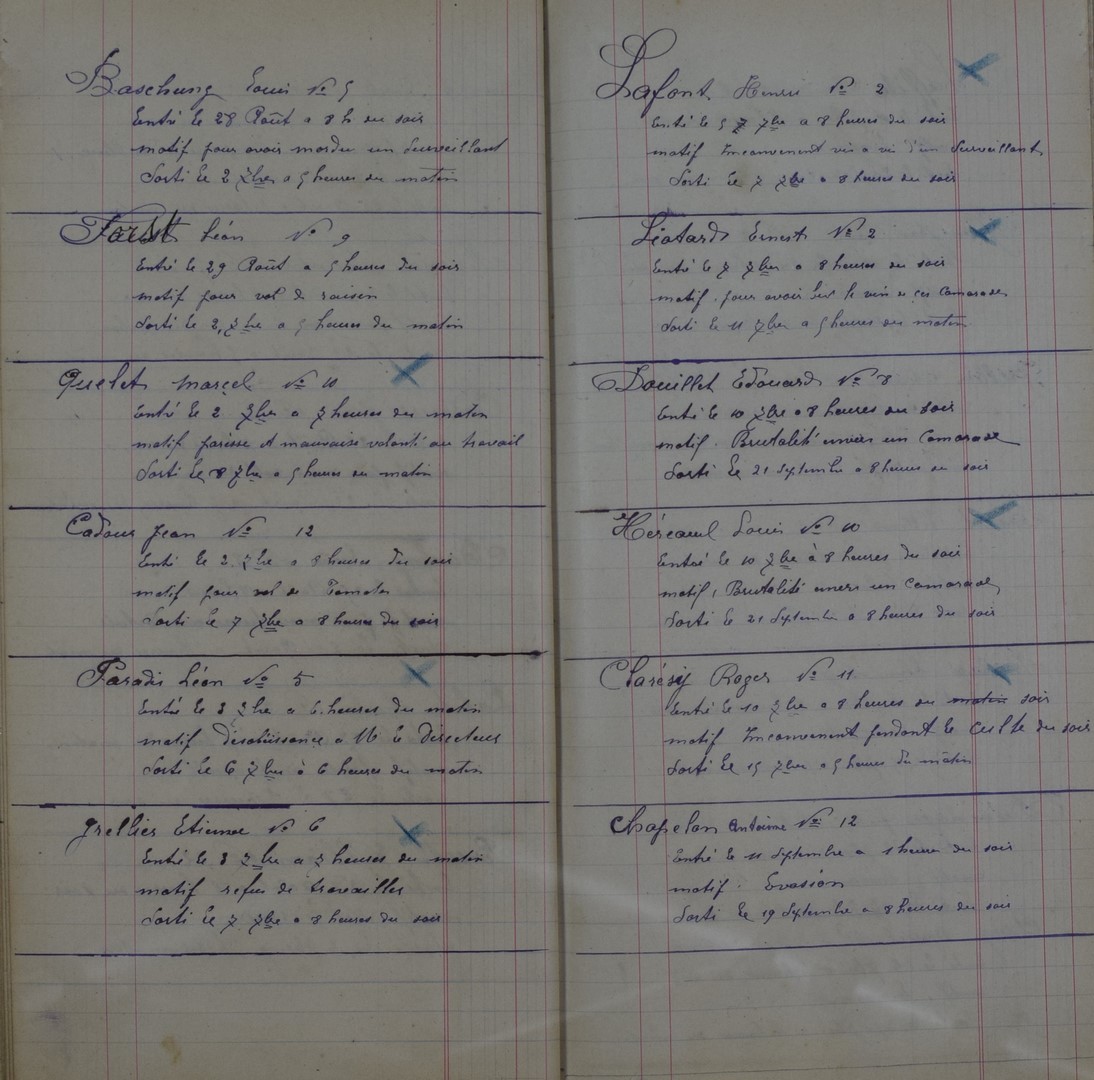 Baschung Louis No 5
Entré le 28 Août a 8 h du soir
motif pour avoir mordu un Surveillant
Sorti le 2 7bre a 5 heures du matin
Forst Léon No 9
Entré le 29 Août a 5 heures du soir
motif pour vol de raisin
Sorti le 2, 7bre a 5 heures du matin
Quelet Marcel No 10
Entré le 2 7bre a 7 heures du matin
motif paresse et mauvaise volonté au travail
Sorti le 8 7bre a 5 heures du matin
Cadour Jean No 12
Entré le 2. 7bre a 8 heures du soir
motif pour vol de Tomates
Sorti le 7 7bre a 8 heures du soir
Paradis Léon No 5
Entré le 3 7bre a 6 heures du matin
motif Désobéissance a Mr le Directeur
Sorti le 6 7bre à 6 heures du matin
Grellier Etienne No 6
Entré le 3 7bre a 7 heures du matin
motif refus de travailler
Sorti le 7 7bre a 8 heures du soir
Lafont Henri No 2
Entré le 5 7bre a 8 heures du soir
motif Inconvenent vis a vis d'un Surveillant
Sorti le 7 7bre a 8 heures du soir
Léotard Ernest No 2
Entré le 7 7bre a 8 heures du soir
motif. pour avoir bu le vin de ces Camarades
Sorti le 11 7bre a 5 heures du matin
Douillet Edouard No 8
Entré le 10 7bre a 8 heures du soir
motif. Brutalité envers un Camarade
Sorti le 21 Septembre a 8 heures du soir
Héreaul Louis No 10
Entré le 10 7bre à 8 heures du soir
motif, Brutalité envers un Camarade
Sorti le 21 Septembre a 8 heures du soir
Clarésy Roger No 11
Entré le 10 7bre a 8 heures du matin soir
motif Inconvenent pendant le Culte du soir
Sorti le 15 7bre a 5 heures du matin
Chapelon Antoine No 12
Entré le 11 Septembre a 1 heure du soir
motif. Evasion
Sorti le 19 Septembre a 8 heures du soir